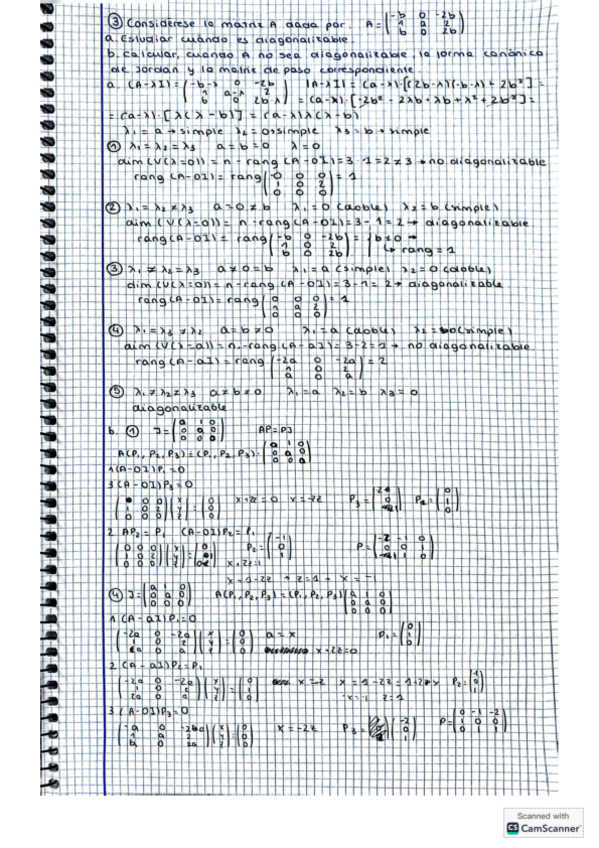 ③ Considérese la matriz A dada por. A = (-b 0 -2b
1 a 2
b 0 2b)
a. Estudiar cuándo es diagonalizable
b. Calcular, cuando A no sea diagonalizable, la forma canónica
de Jordan y la matriz de paso correspondiente
a. (A-λI) = (-b-λ 0 -2b |A-λI| = (a-λ)·[(2b-λ)(-b-λ)+2b²] =
1 a-λ 2
b 0 2b-λ)
= (a-λ)·[-2b²-2λb+λb+λ²+2b²] =
= (a-λ)·[λ(λ-b)] = (a-λ)λ(λ-b)
λ₁ = a → simple λ₂ = 0 → simple λ₃ = b → simple
① λ₁ = λ₂ = λ₃ a = b = 0 λ = 0
dim(V(λ=0)) = n - rang(A-0I) = 3-1 = 2 ≠ 3 → no diagonalizable
rang(A-0I) = rang (0 0 0
1 0 2
0 0 0) = 1
② λ₁ = λ₂ ≠ λ₃ a = 0 ≠ b λ₁ = 0 (doble) λ₂ = b (simple)
dim(V(λ=0)) = n - rang(A-0I) = 3-1 = 2 → diagonalizable
rang(A-0I) = rang (-b 0 -2b
1 0 2
b 0 2b) = b≠0
↳ rang = 1
③ λ₁ ≠ λ₂ = λ₃ a ≠ 0 = b λ₁ = a (simple) λ₂ = 0 (doble)
dim(V(λ=0)) = n - rang(A-0I) = 3-1 = 2 → diagonalizable
rang(A-0I) = rang (0 0 0
1 a 2
0 0 0) = 1
④ λ₁ = λ₃ ≠ λ₂ a = b ≠ 0 λ₁ = a (doble) λ₂ = 0 (simple)
dim(V(λ=a)) = n - rang(A-aI) = 3-2 = 1 → no diagonalizable
rang(A-aI) = rang (-2a 0 -2a
1 0 2
a 0 a) = 2
⑤ λ₁ ≠ λ₂ ≠ λ₃ a ≠ b ≠ 0 λ₁ = a λ₂ = b λ₃ = 0
diagonalizable
b. ① J = (a 1 0
0 a 0
0 0 0) AP = PJ
A(P₁, P₂, P₃) = (P₁, P₂, P₃)·(a 1 0
0 a 0
0 0 0)
1 (A-0I)P₁ = 0
3 (A-0I)P₃ = 0
x+2z = 0 x = -2z
2 AP₂ = P₁ (A-0I)P₂ = P₁
P₂ = (-1
0
1)
x+2z = 1
x = 1-2z → z = 1 → x = -1
④ J = (a 1 0
0 a 0
0 0 0) A(P₁, P₂, P₃) = (P₁, P₂, P₃)(a 1 0
0 a 0
0 0 0)
1 (A-aI)P₁ = 0
x+2z = 0 P₁ = (0
1
0)
2 (A-aI)P₂ = P₁
x = 1-2z
x = -1 z = 1 P₂ = (-1
0
1)
3 (A-0I)P₃ = 0
x = -2z P₃ = (-2
0
1) P = (0 -1 -2
1 0 0
0 1 1)
Scanned with
CS CamScanner